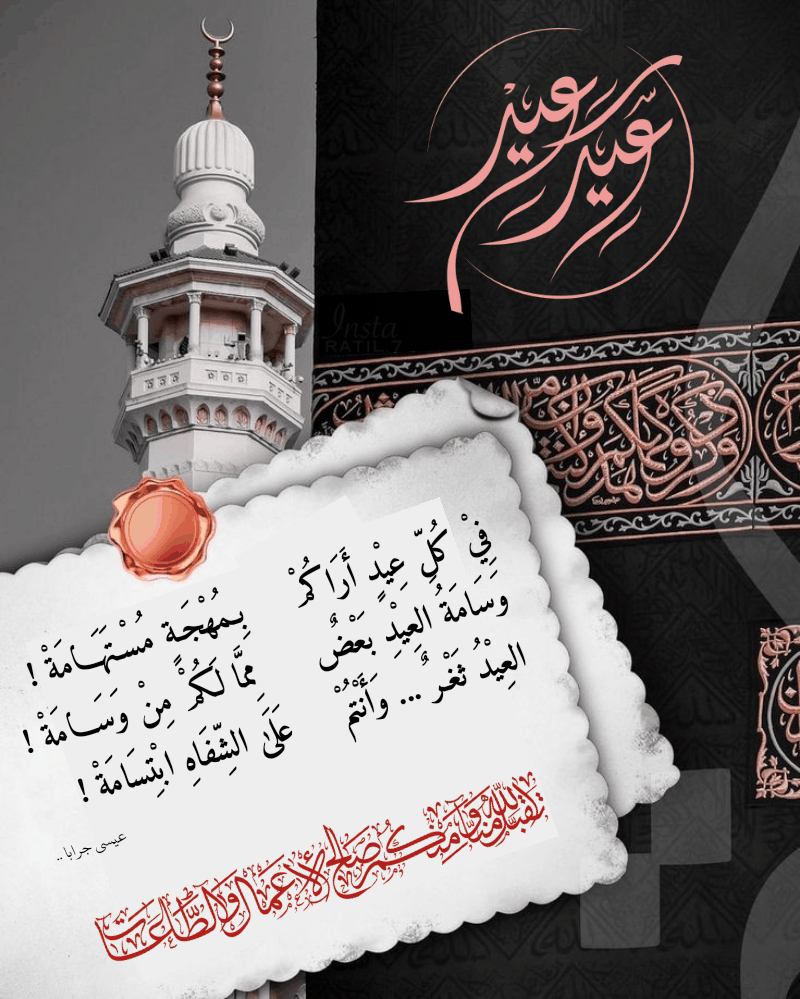 عيد سعيد
Insta
RATIL 7
فِيْ كُلِّ عِيْدٍ أَرَاكُمْ بِمُهْجَةٍ مُسْتَهَامَةْ !
وَسَامَةُ العِيْدِ بَعْضٌ مِمَّا لَكُمْ مِنْ وَسَامَةْ !
العِيْدُ ثَغْرٌ ... وَأَنْتُمْ عَلَى الشِّفَاهِ ابْتِسَامَةْ !
عيسى جرابا ..
تقبل الله منا ومنكم صالح الأعمال والطاعات